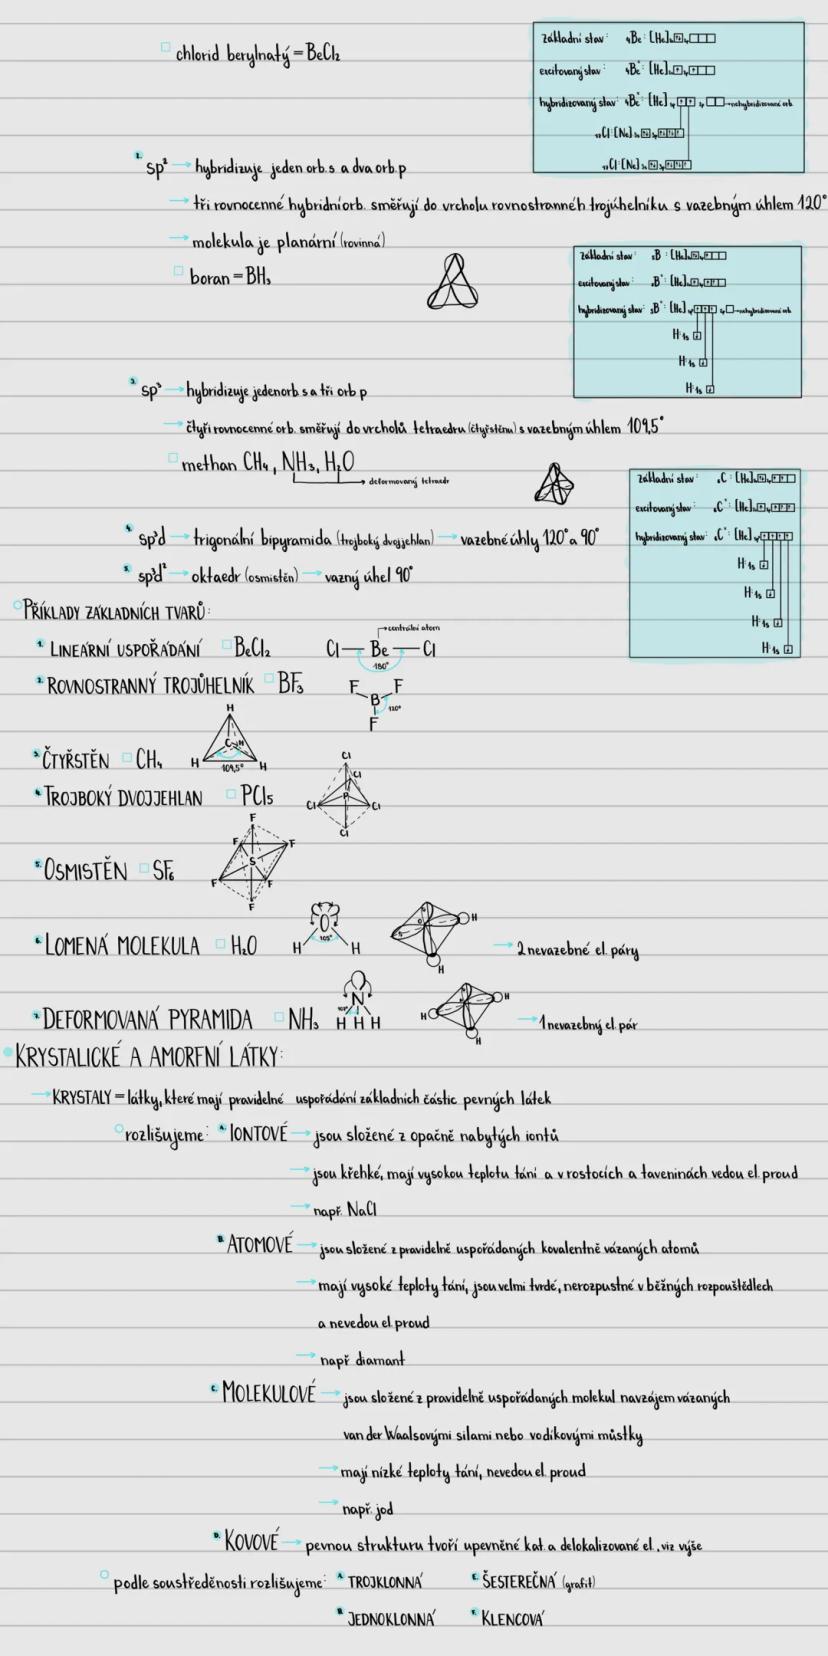 chlorid berylnatý = BeCl₂
základní stav: ₄Be: [He]₂ₛ ₂ₚ
excitovaný stav: ₄Be*: [He]₂ₛ ₂ₚ
hybridizovaný stav: ₄Be*: [He] sp ₂ₚ → nehybridizované orb.
₁₇Cl: [Ne]₃ₛ ₃ₚ
₁₇Cl: [Ne]₃ₛ ₃ₚ
2. sp² → hybridizuje jeden orb. s a dva orb. p
→ tři rovnocenné hybridní orb. směřují do vrcholu rovnostranného trojúhelníku s vazebným úhlem 120°
→ molekula je planární (rovinná)
boran = BH₃
základní stav: ₅B: [He]₂ₛ ₂ₚ
excitovaný stav: ₅B*: [He]₂ₛ ₂ₚ
hybridizovaný stav: ₅B*: [He] sp² ₂ₚ → nehybridizované orb.
H: 1s
H: 1s
H: 1s
3. sp³ → hybridizuje jeden orb s a tři orb p
→ čtyři rovnocenné orb. směřují do vrcholů tetraedru (čtyřstěnu) s vazebným úhlem 109,5°
methan CH₄, NH₃, H₂O
→ deformovaný tetraedr
základní stav: ₆C: [He]₂ₛ ₂ₚ
excitovaný stav: ₆C*: [He]₂ₛ ₂ₚ
hybridizovaný stav: ₆C*: [He] sp³
H: 1s
H: 1s
H: 1s
H: 1s
4. sp³d → trigonální bipyramida (trojboký dvojjehlan) → vazebné úhly 120° a 90°
5. sp³d² → oktaedr (osmistěn) → vazný úhel 90°
PŘÍKLADY ZÁKLADNÍCH TVARŮ:
→ centrální atom
1. LINEÁRNÍ USPOŘÁDÁNÍ BeCl₂ Cl — Be — Cl
180°
2. ROVNOSTRANNÝ TROJÚHELNÍK BF₃ F F
B 120°
F
H
3. ČTYŘSTĚN CH₄ C H
H 109,5° H
Cl
Cl
4. TROJBOKÝ DVOJJEHLAN PCl₅ P
Cl Cl
Cl
F
F F
5. OSMISTĚN SF₆ S
F F
F
6. LOMENÁ MOLEKULA H₂O O H
H 105° H → 2 nevazebné el. páry
H
7. DEFORMOVANÁ PYRAMIDA NH₃ N H
H H H H → 1 nevazebný el. pár
H
KRYSTALICKÉ A AMORFNÍ LÁTKY:
→ KRYSTALY = látky, které mají pravidelné uspořádání základních částic pevných látek
rozlišujeme: A. IONTOVÉ → jsou složené z opačně nabytých iontů
→ jsou křehké, mají vysokou teplotu tání a v rostocích a taveninách vedou el. proud
→ např. NaCl
B. ATOMOVÉ → jsou složené z pravidelně uspořádaných kovalentně vázaných atomů
→ mají vysoké teploty tání, jsou velmi tvrdé, nerozpustné v běžných rozpouštědlech
a nevedou el. proud
→ např diamant
C. MOLEKULOVÉ → jsou složené z pravidelně uspořádaných molekul navzájem vázaných
van der Waalsovými silami nebo vodíkovými můstky
→ mají nízké teploty tání, nevedou el. proud
→ např. jod
D. KOVOVÉ → pevnou strukturu tvoří upevněné kat. a delokalizované el., viz výše
podle soustředěnosti rozlišujeme: A. TROJKLONNÁ E. ŠESTEREČNÁ (grafit)
B. JEDNOKLONNÁ F. KLENCOVÁ